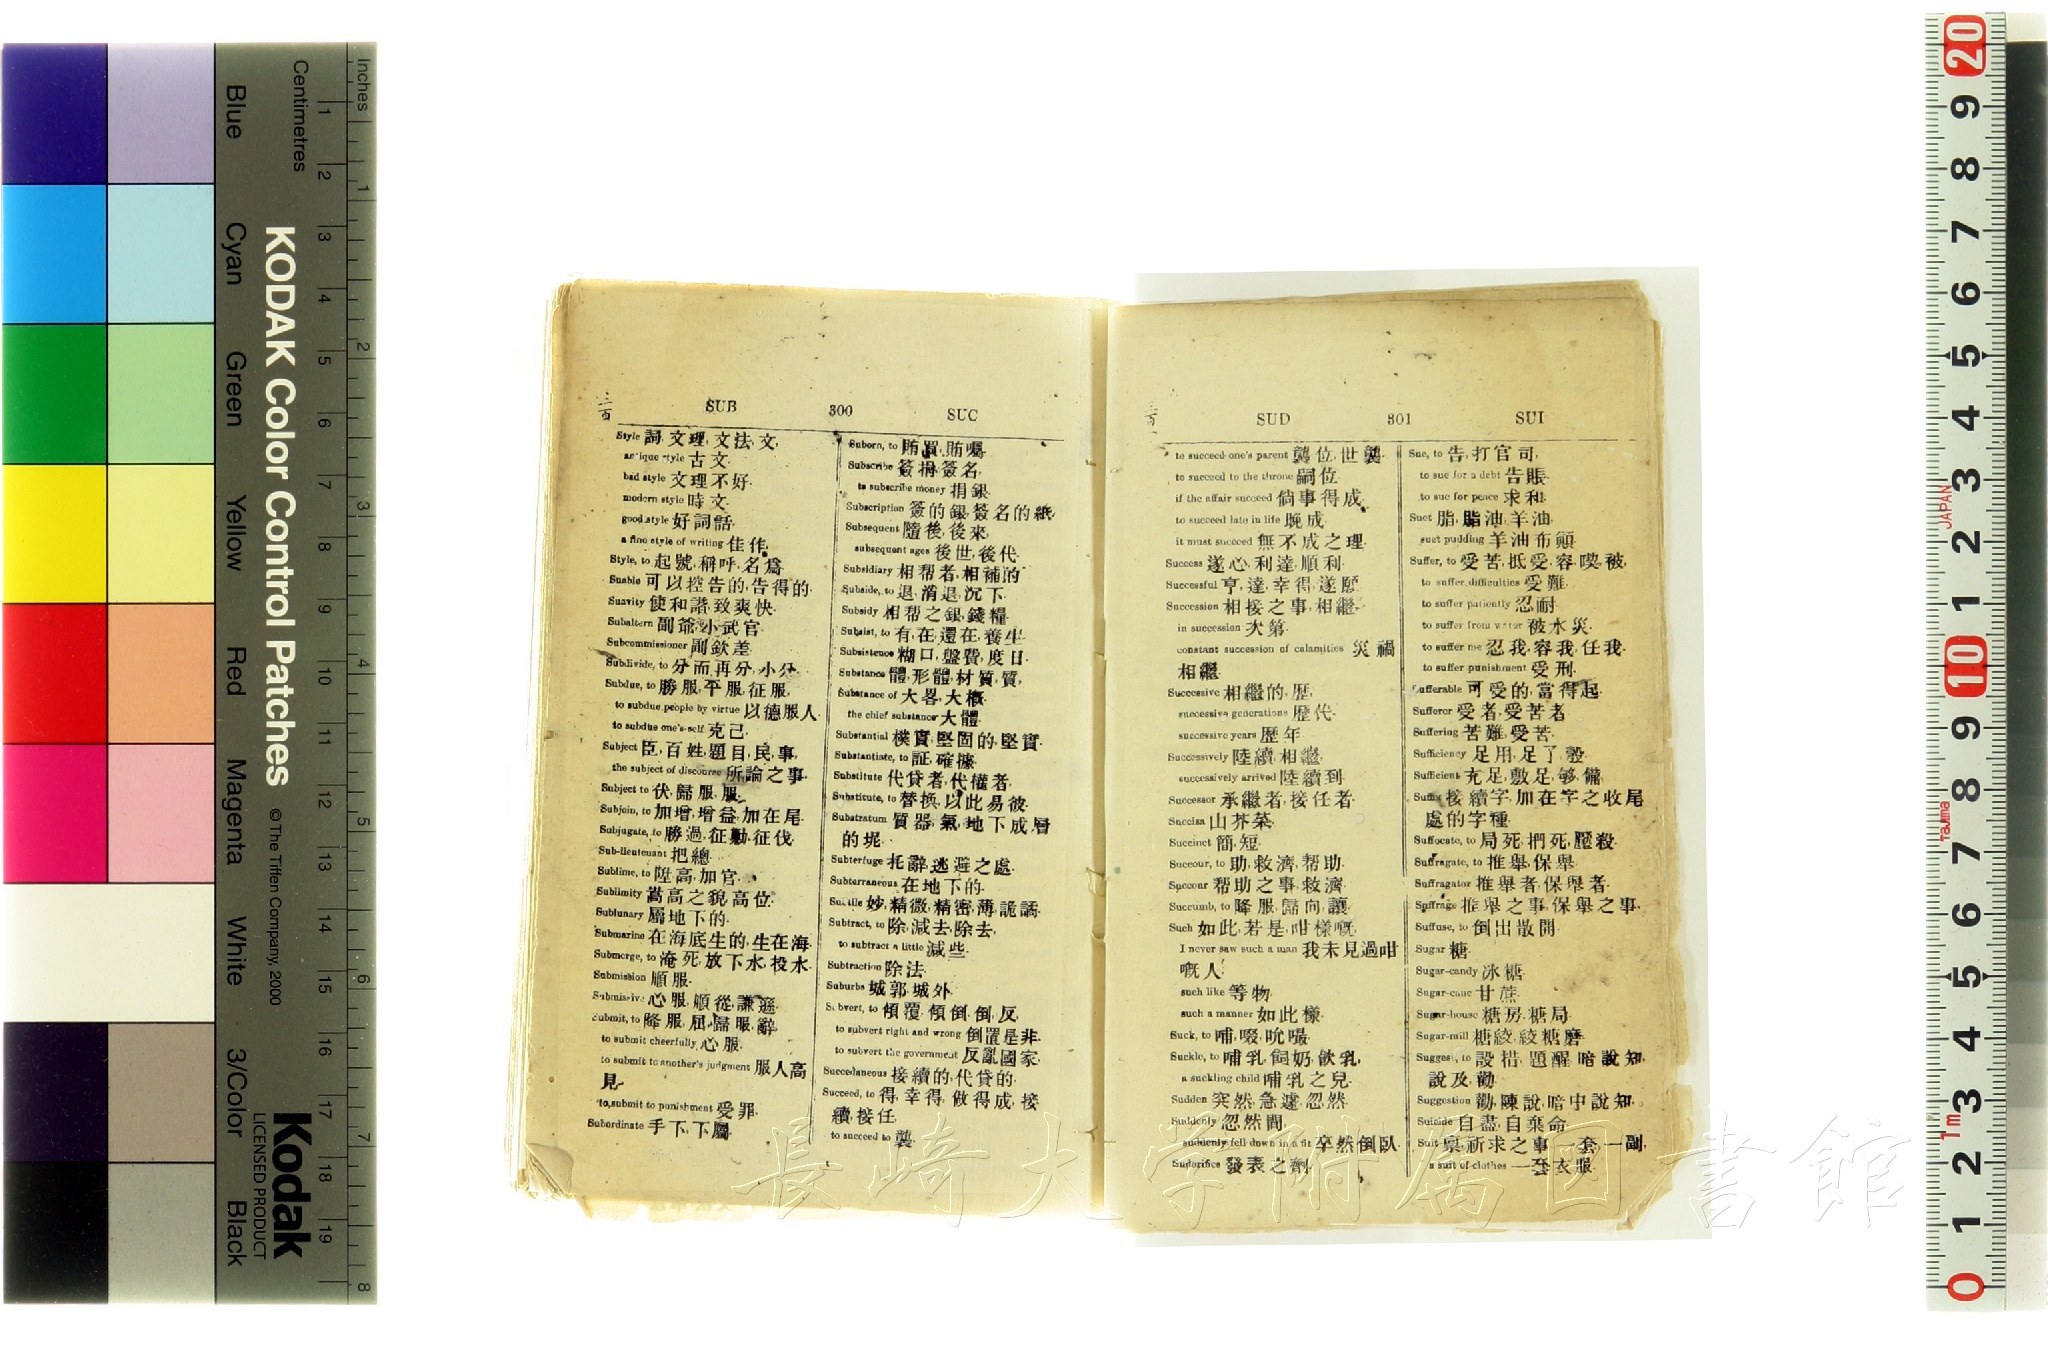 Inches
Centimetres
KODAK Color Control Patches © The Tiffen Company, 2000
Blue Cyan Green Yellow Red Magenta White 3/Color Black
Kodak
LICENSED PRODUCT
SUB 300 SUC
Style 詞, 文理, 文法, 文,
antique style 古文
bad style 文理不好.
modern style 時文
good style 好詞話
a fine style of writing 佳作
Style, to 起號, 稱呼, 名爲
Suable 可以控告的, 告得的.
Suavity 使和諧, 致爽快.
Subaltern 副爺, 小武官
Subcommissioner 副欽差
Subdivide, to 分而再分, 小分
Subdue, to 勝服, 平服, 征服,
to subdue people by virtue 以德服人
to subdue one's-self 克己.
Subject 臣, 百姓, 題目, 民事,
the subject of discourse 所論之事
Subject to 伏, 歸服, 服
Subjoin, to 加增, 增益, 加在尾
Subjugate, to 勝過, 征勦, 征伐
Sub-lieutenant 把總
Sublime, to 陞高, 加官
Sublimity 嵩高之貌, 高位
Sublunary 屬地下的
Submarine 在海底生的, 生在海
Submerge, to 淹死, 放下水, 投水
Submission 順服
Submissive 心服, 順從, 謙遜
Submit, to 降服, 屈, 歸服, 辭
to submit cheerfully 心服
to submit to another's judgment 服人高
見
to submit to punishment 受罪
Subordinate 手下, 下屬
Suborn, to 賄買, 賄囑
Subscribe 簽捐, 簽名,
to subscribe money 捐銀
Subscription 簽的銀, 簽名的紙
Subsequent 隨後, 後來,
subsequent ages 後世, 後代
Subsidiary 相帮者, 相補的
Subside, to 退, 消退, 沉下
Subsidy 相帮之銀, 錢糧
Subsist, to 有, 在, 還在, 養生
Subsistence 糊口, 盤費, 度日
Substance 體, 形體, 材質, 質,
Substance of 大畧, 大概
the chief substance 大體
Substantial 樸實, 堅固的, 堅實
Substantiate, to 証, 確據
Substitute 代貸者, 代權者
Substitute, to 替換, 以此易彼
Substratum 質器, 氣, 地下成層
的坭
Subterfuge 托辭, 逃避之處
Subterraneous 在地下的
Subtile 妙, 精微, 精密, 薄, 詭譎
Subtract, to 除, 減去, 除去,
to subtract a little 減些
Subtraction 除法
Suburbs 城郭, 城外
Subvert, to 傾覆, 傾倒, 倒, 反
to subvert right and wrong 倒置是非
to subvert the government 反亂國家
Succedaneous 接續的, 代貸的
Succeed, to 得, 幸得, 做得成, 接
續, 接任
to succeed to 襲
SUD 301 SUI
to succeed one's parent 襲位, 世襲
to succeed to the throne 嗣位
if the affair succeed 倘事得成
to succeed late in life 晚成
it must succeed 無不成之理
Success 遂心, 利達, 順利
Successful 亨, 達, 幸得, 遂願
Succession 相接之事, 相繼
in succession 次第
constant succession of calamities 災禍
相繼
Successive 相繼的, 歷,
successive generations 歷代
successive years 歷年
Successively 陸續, 相繼
successively arrived 陸續到
Successor 承繼者, 接任者
Succisa 山芥菜
Succinct 簡, 短
Succour, to 助, 救濟, 帮助
Succour 帮助之事, 救濟
Succumb, to 降服, 歸向, 讓
Such 如此, 若是, 咁樣嘅
I never saw such a man 我未見過咁
嘅人
such like 等物
such a manner 如此樣
Suck, to 哺, 啜, 吮嘬
Suckle, to 哺乳, 飼奶, 飲乳,
a suckling child 哺乳之兒
Sudden 突然, 急遽, 忽然
Suddenly 忽然間,
suddenly fell down in a fit 卒然倒臥
Sudorifics 發表之劑
Sue, to 告, 打官司,
to sue for a debt 告賬
to sue for peace 求和
Suet 脂, 脂油, 羊油
suet pudding 羊油布顛
Suffer, to 受苦, 抵受, 容, 喫, 被,
to suffer difficulties 受難
to suffer patiently 忍耐
to suffer from water 被水災
to suffer me 忍我, 容我, 任我
to suffer punishment 受刑
Sufferable 可受的, 當得起
Sufferer 受者, 受苦者
Suffering 苦難, 受苦
Sufficiency 足用, 足了, 彀
Sufficient 充足, 敷足, 够, 備
Suffix 接續字, 加在字之收尾
處的字種
Suffocate, to 局死, 捫死, 壓殺
Suffragate, to 推舉, 保舉
Suffragator 推舉者, 保舉者
Suffrage 推舉之事, 保舉之事
Suffuse, to 倒出, 散開
Sugar 糖
Sugar-candy 冰糖
Sugar-cane 甘蔗
Sugar-house 糖房, 糖局
Sugar-mill 糖絞, 絞糖磨
Suggest, to 設措, 題醒, 暗說知,
說及, 勸
Suggestion 勸, 陳說, 暗中說知
Suicide 自盡, 自棄命
Suit 稟, 祈求之事, 一套, 一副,
a suit of clothes 一套衣服
長崎大学附属図書館
JAPAN
Tajima
1m